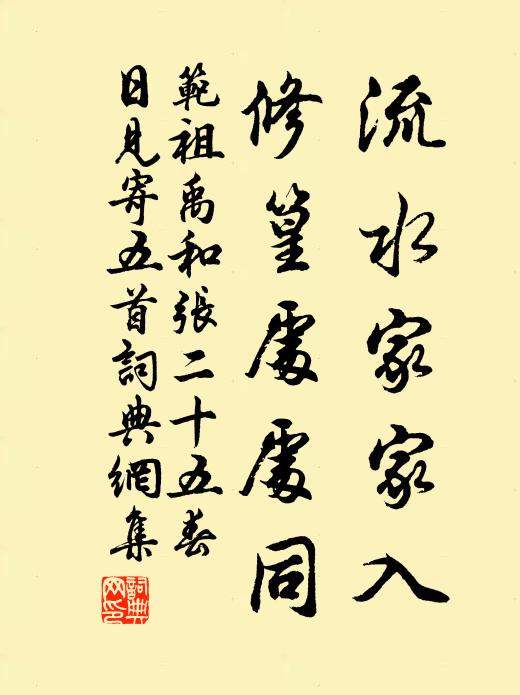 流水家家入
修篁處處同
範祖禹和張二十五春
日見寄五首詞典網集
詞典網印